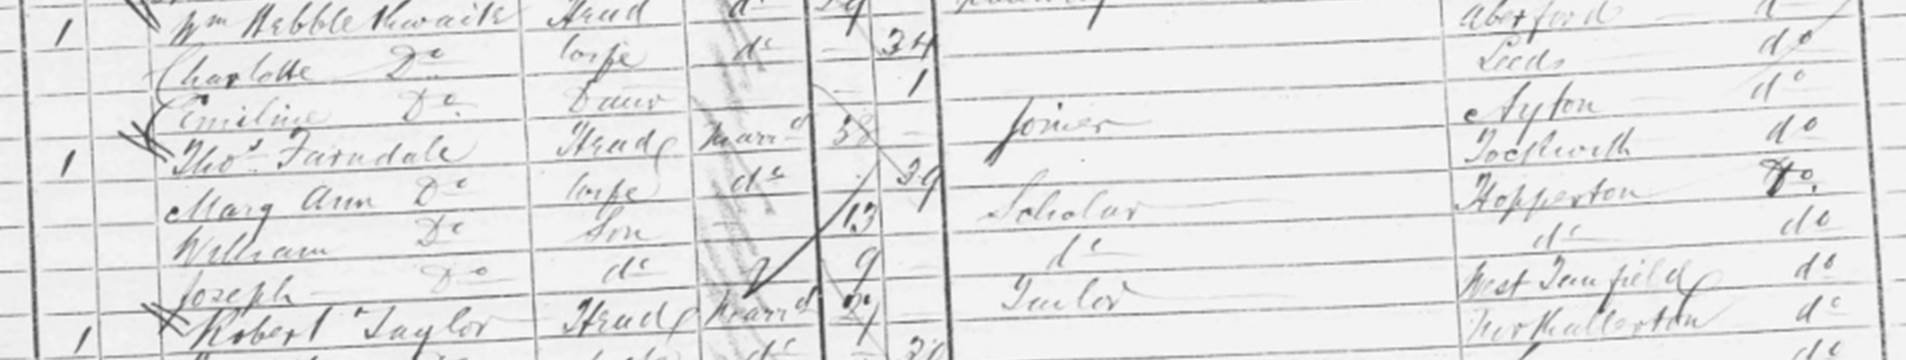 1 Wm Hebblethwaite Head do 39 Aberford do
Charlotte Do Wife do 34 Leeds do
Emiline Do Daur 1 Ayton do
1 Thos Farndale Head Marrd 38 Joiner Tockwith do
Mary Ann Do Wife do 39 Hopperton Do
William Do Son 13 Scholar do do
Joseph Do do 9 do West Tanfield do
1 Robert Taylor Head Marrd Tailor Northallerton do
do do